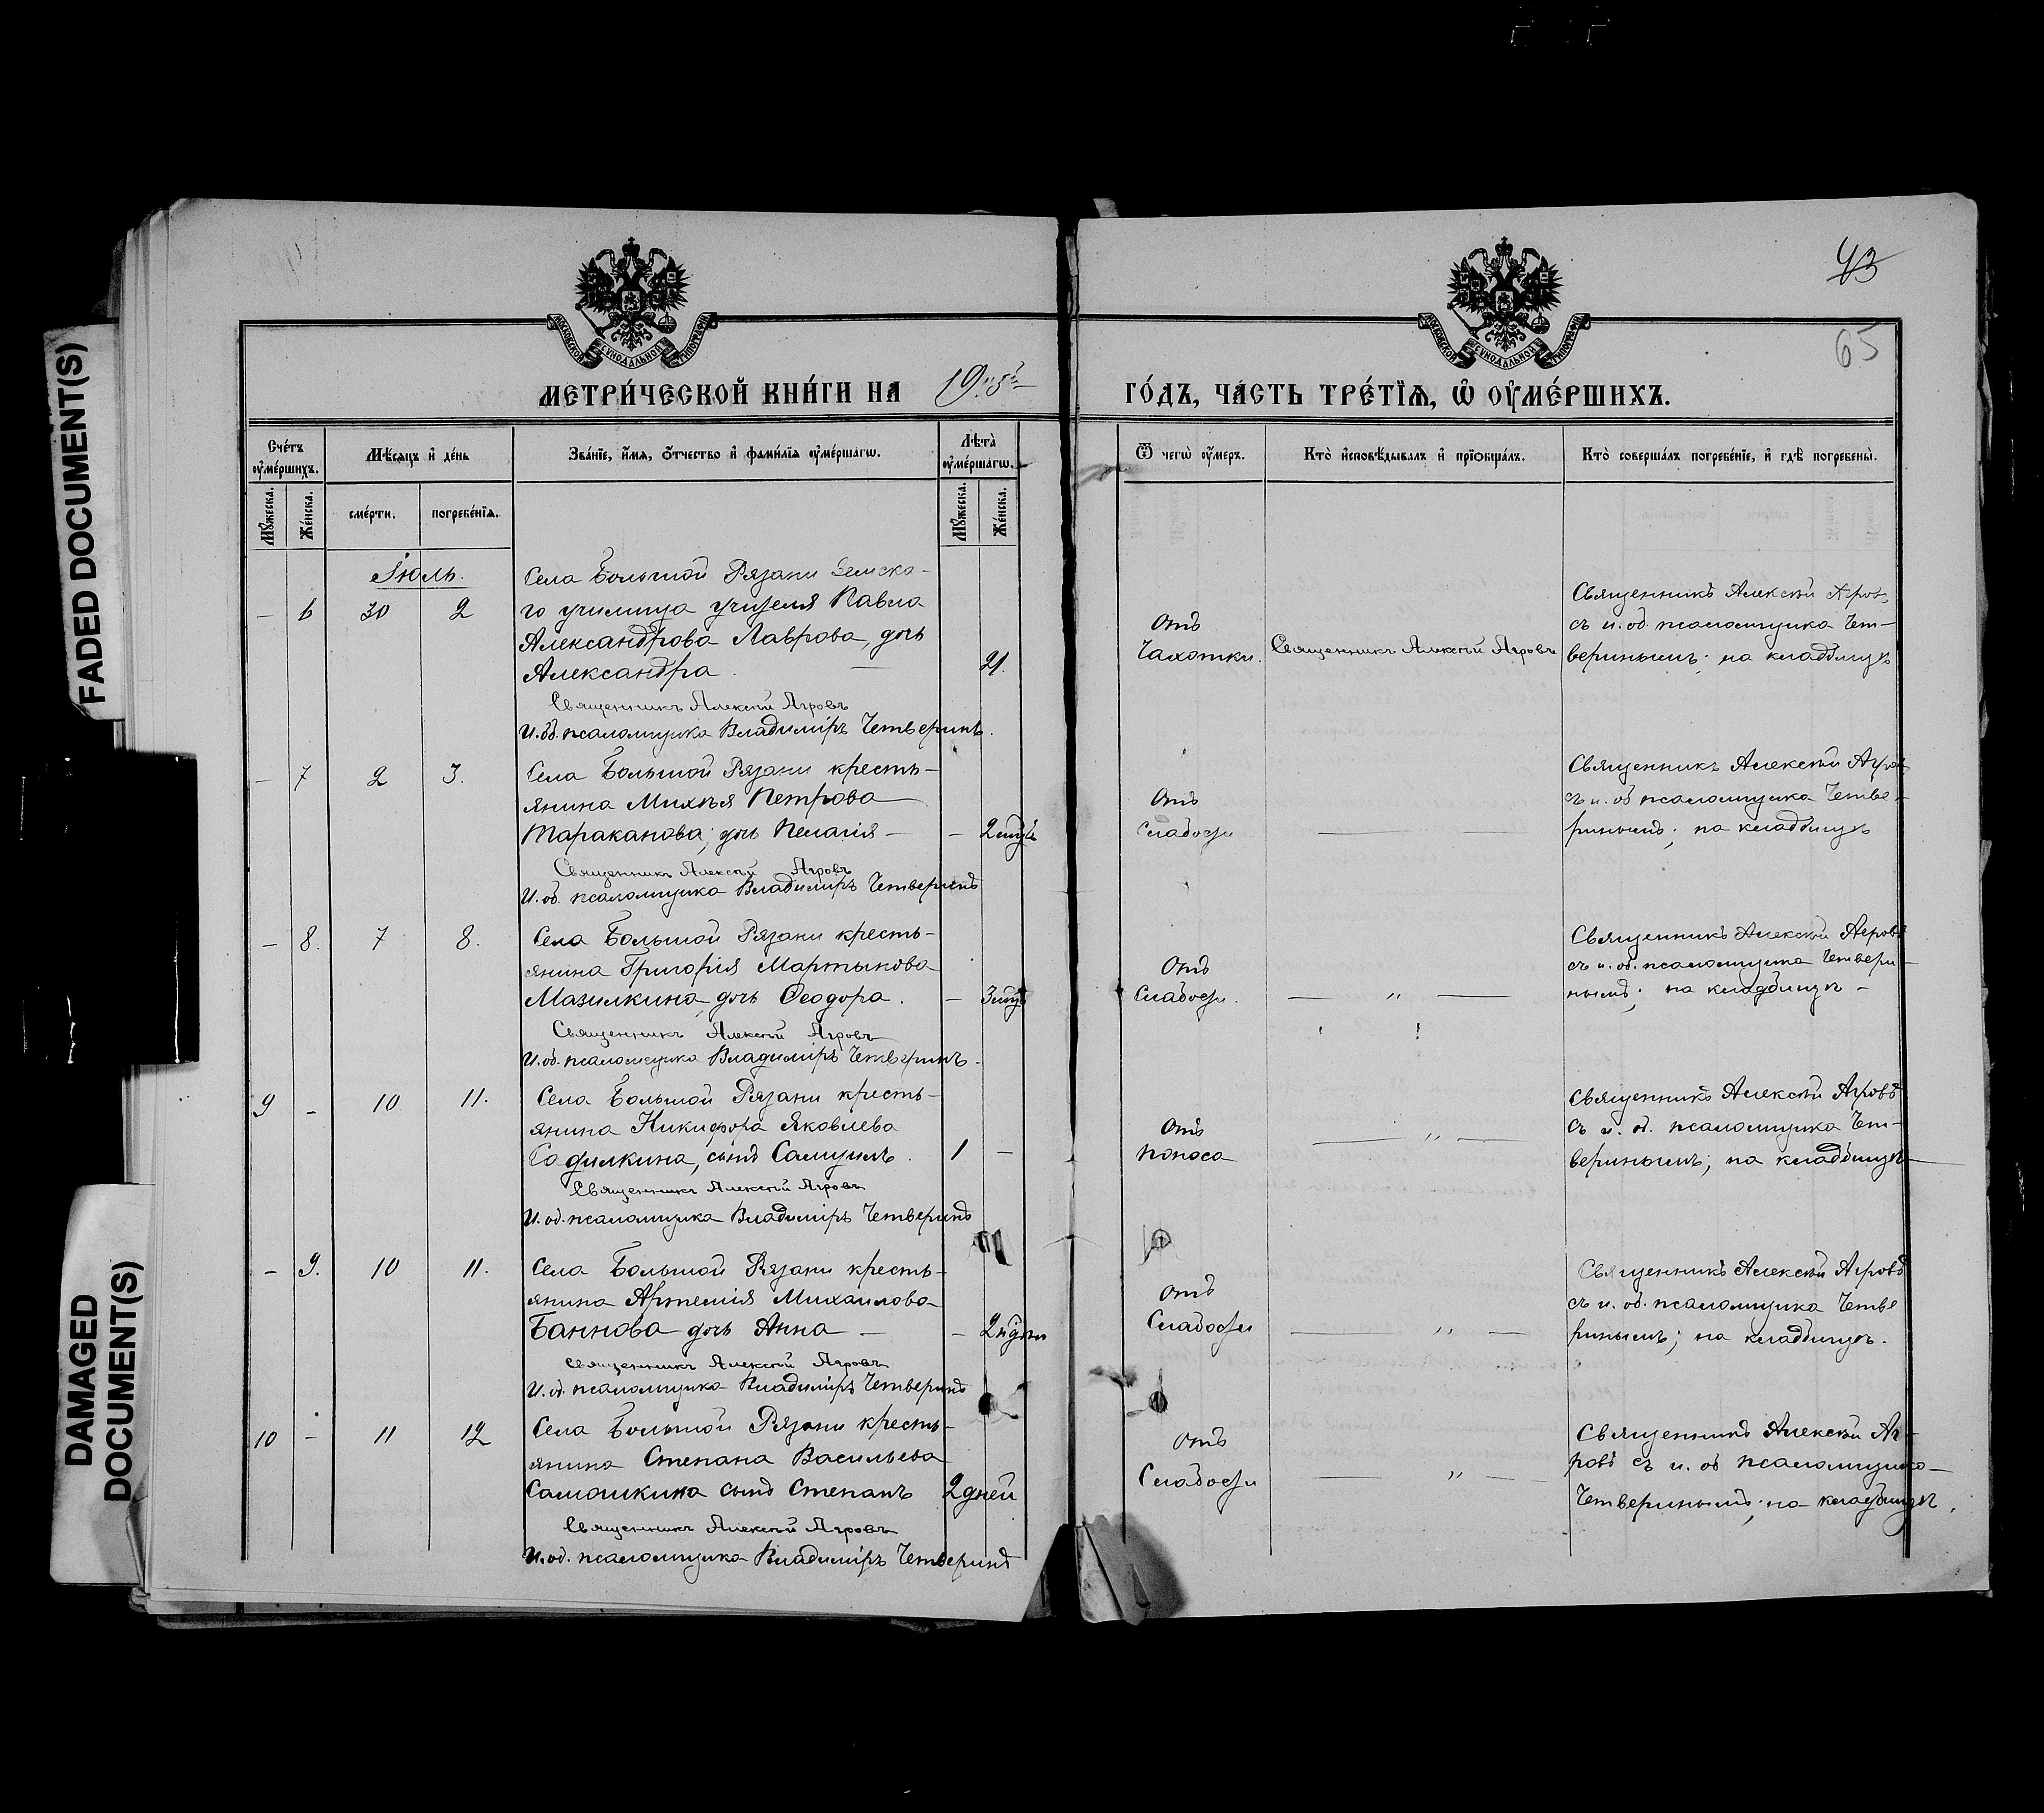 FADED DOCUMENT(S)
DAMAGED
DOCUMENT(S)
43
65
МОСКОВСКОЙ СѴНОДАЛЬНОЙ ТИПОГРАФІИ
МОСКОВСКОЙ СѴНОДАЛЬНОЙ ТИПОГРАФІИ
МЕТРИ́ЧЕСКОЙ КНИ́ГИ НА
ГО́ДЪ, ЧА́СТЬ ТРЕ́ТЇѦ, Ѡ҆ ОУ҆МЕ́РШИХЪ.
Сче́тъ оу҆ме́ршихъ.
Мѣ́сѧцъ и҆ де́нь
Зва́нїе, и҆́мѧ, ѻ҆́тчество и҆ фами́лїѧ оу҆ме́ршагѡ.
Лѣ́та оу҆ме́ршагѡ.
Ѿ чегѡ̀ оу҆́меръ.
Кто̀ и҆сповѣ́дывалъ и҆ прїѡбща́лъ.
Кто̀ соверша́лъ погребе́нїе, и҆ гдѣ̀ погребены̀.
Мꙋ́жеска.
Же́нска.
сме́рти.
погребе́нїѧ.
Мꙋ́жеска.
Же́нска.
Іюль.
– 6 30 2
Села Большой Рязани Земска-
го училища учителя Павла
Александрова Лаврова, дочь
Александра. 21.
Священникъ Алексѣй Агровъ
И. об. псаломщика Владиміръ Четверинъ.
Отъ
Чахотки.
Священникъ Алексѣй Агровъ
Священникъ Алексѣй Агровъ
съ и. об. псаломщика Чет-
веринымъ; на кладбищѣ
– 7 2 3.
Села Большой Рязани кресть-
янина Михѣя Петрова
Тараканова, дочь Пелагія – – 2 мѣс
Священникъ Алексѣй Агровъ
И. об. псаломщика Владиміръ Четверинъ
Отъ
Слабости
Священникъ Алексѣй Агровъ
съ и. об псаломщика Четве-
ринымъ; на кладбищѣ
– 8. 7 8.
Села Большой Рязани кресть-
янина Григорія Мартынова
Мазилкина, дочь Ѳеодора. – 3 мѣс
Священникъ Алексѣй Агровъ
И. об. псаломщика Владиміръ Четверинъ.
Отъ
Слабости. — „ —
Священникъ Алексѣй Агровъ
съ и. об. псаломщика Четвери-
нымъ; на кладбищѣ –
9 – 10 11.
Села Большой Рязани кресть-
янина Никифора Яковлева
сынъ Самуилъ. 1 –
Священникъ Алексѣй Агровъ
И. об. псаломщика Владиміръ Четверинъ
Отъ
Поноса — „ —
Священникъ Алексѣй Агровъ
съ и. об. псаломщика Чет-
веринымъ; на кладбищѣ
– 9. 10 11.
Села Большой Рязани кресть-
янина Артемія Михаилова
Баннова дочь Анна – –
Священникъ Алексѣй Агровъ
И. об. псаломщика Владиміръ Четверинъ
Отъ
Слабости — „ —
Священникъ Алексѣй Агровъ
съ и. об. псаломщика Четве
ринымъ; на кладбищѣ.
10 – 11 12
Села Большой Рязани кресть-
янина Степана Васильева
Самошкина сынъ Степанъ 2 дней
Священникъ Алексѣй Агровъ
И. об. псаломщика Владиміръ Четверинъ
Отъ
Слабости — „ —
Священникъ Алексѣй Аг-
ровъ съ и. об псаломщика
Четверинымъ; на кладбищѣ.